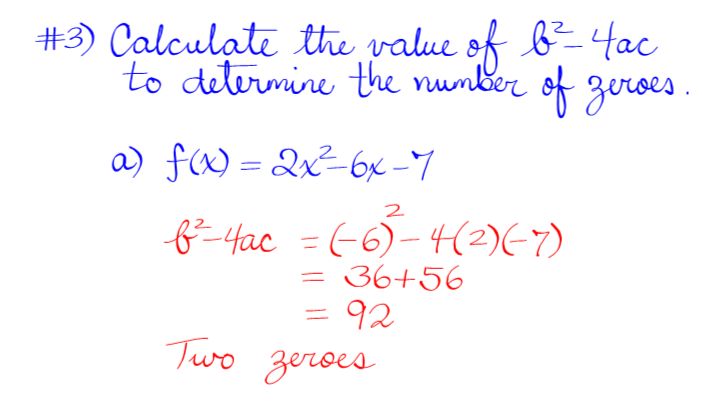 #3) Calculate the value of b²-4ac
to determine the number of zeroes.
a) f(x) = 2x²-6x-7
b²-4ac = (-6)²-4(2)(-7)
= 36+56
= 92
Two zeroes